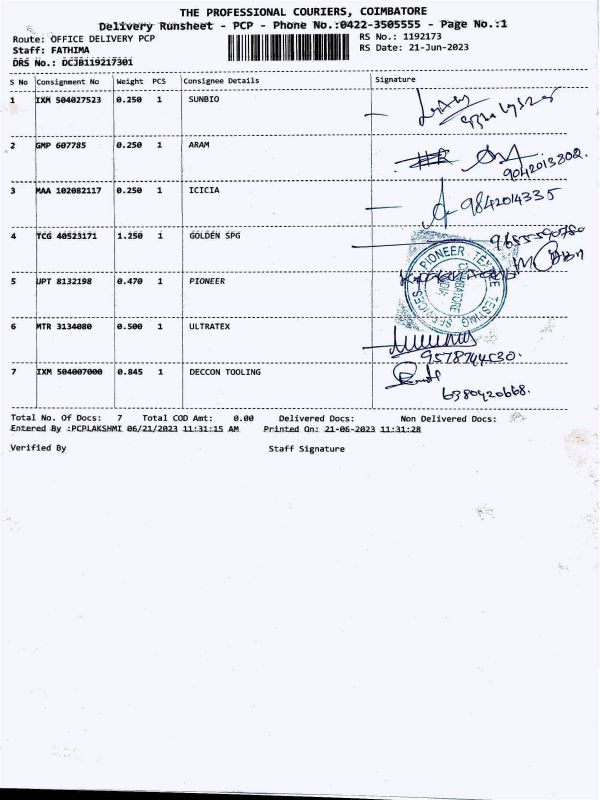 THE PROFESSIONAL COURIERS, COIMBATORE
Delivery Runsheet - PCP - Phone No.:0422-3505555 - Page No.:1
Route: OFFICE DELIVERY PCP RS No.: 1192173
Staff: FATHIMA RS Date: 21-Jun-2023
DRS No.: DCJB119217301
S No Consignment No Weight PCS Consignee Details Signature
1 IXM 504027523 0.250 1 SUNBIO
2 GMP 607785 0.250 1 ARAM
9042013802.
3 MAA 102082117 0.250 1 ICICIA 9842014335
4 TCG 40523171 1.250 1 GOLDEN SPG 9655590780
PIONEER TEXTILE TESTING SERVICES
COIMBATORE
5 UPT 8132198 0.470 1 PIONEER
6 MTR 3134080 0.500 1 ULTRATEX
9578744530.
7 IXM 504007000 0.845 1 DECCON TOOLING
6380420668.
Total No. Of Docs: 7 Total COD Amt: 0.00 Delivered Docs: Non Delivered Docs:
Entered By :PCPLAKSHMI 06/21/2023 11:31:15 AM Printed On: 21-06-2023 11:31:28
Verified By Staff Signature